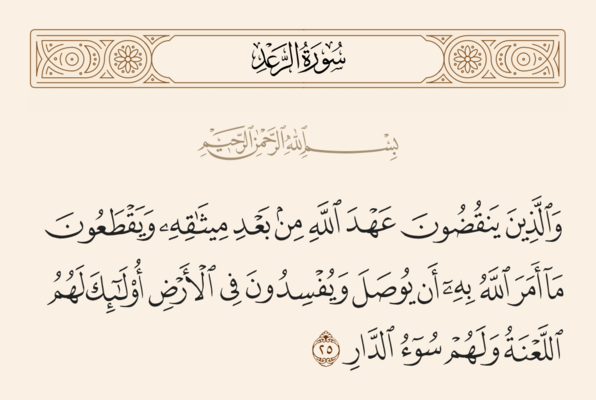 سُورَةُ الرَّعْدِ
بِسْمِ ٱللَّهِ ٱلرَّحْمَٰنِ ٱلرَّحِيمِ
وَٱلَّذِينَ يَنقُضُونَ عَهْدَ ٱللَّهِ مِنۢ بَعْدِ مِيثَٰقِهِۦ وَيَقْطَعُونَ
مَآ أَمَرَ ٱللَّهُ بِهِۦٓ أَن يُوصَلَ وَيُفْسِدُونَ فِى ٱلْأَرْضِ أُو۟لَٰٓئِكَ لَهُمُ
ٱللَّعْنَةُ وَلَهُمْ سُوٓءُ ٱلدَّارِ ٢٥